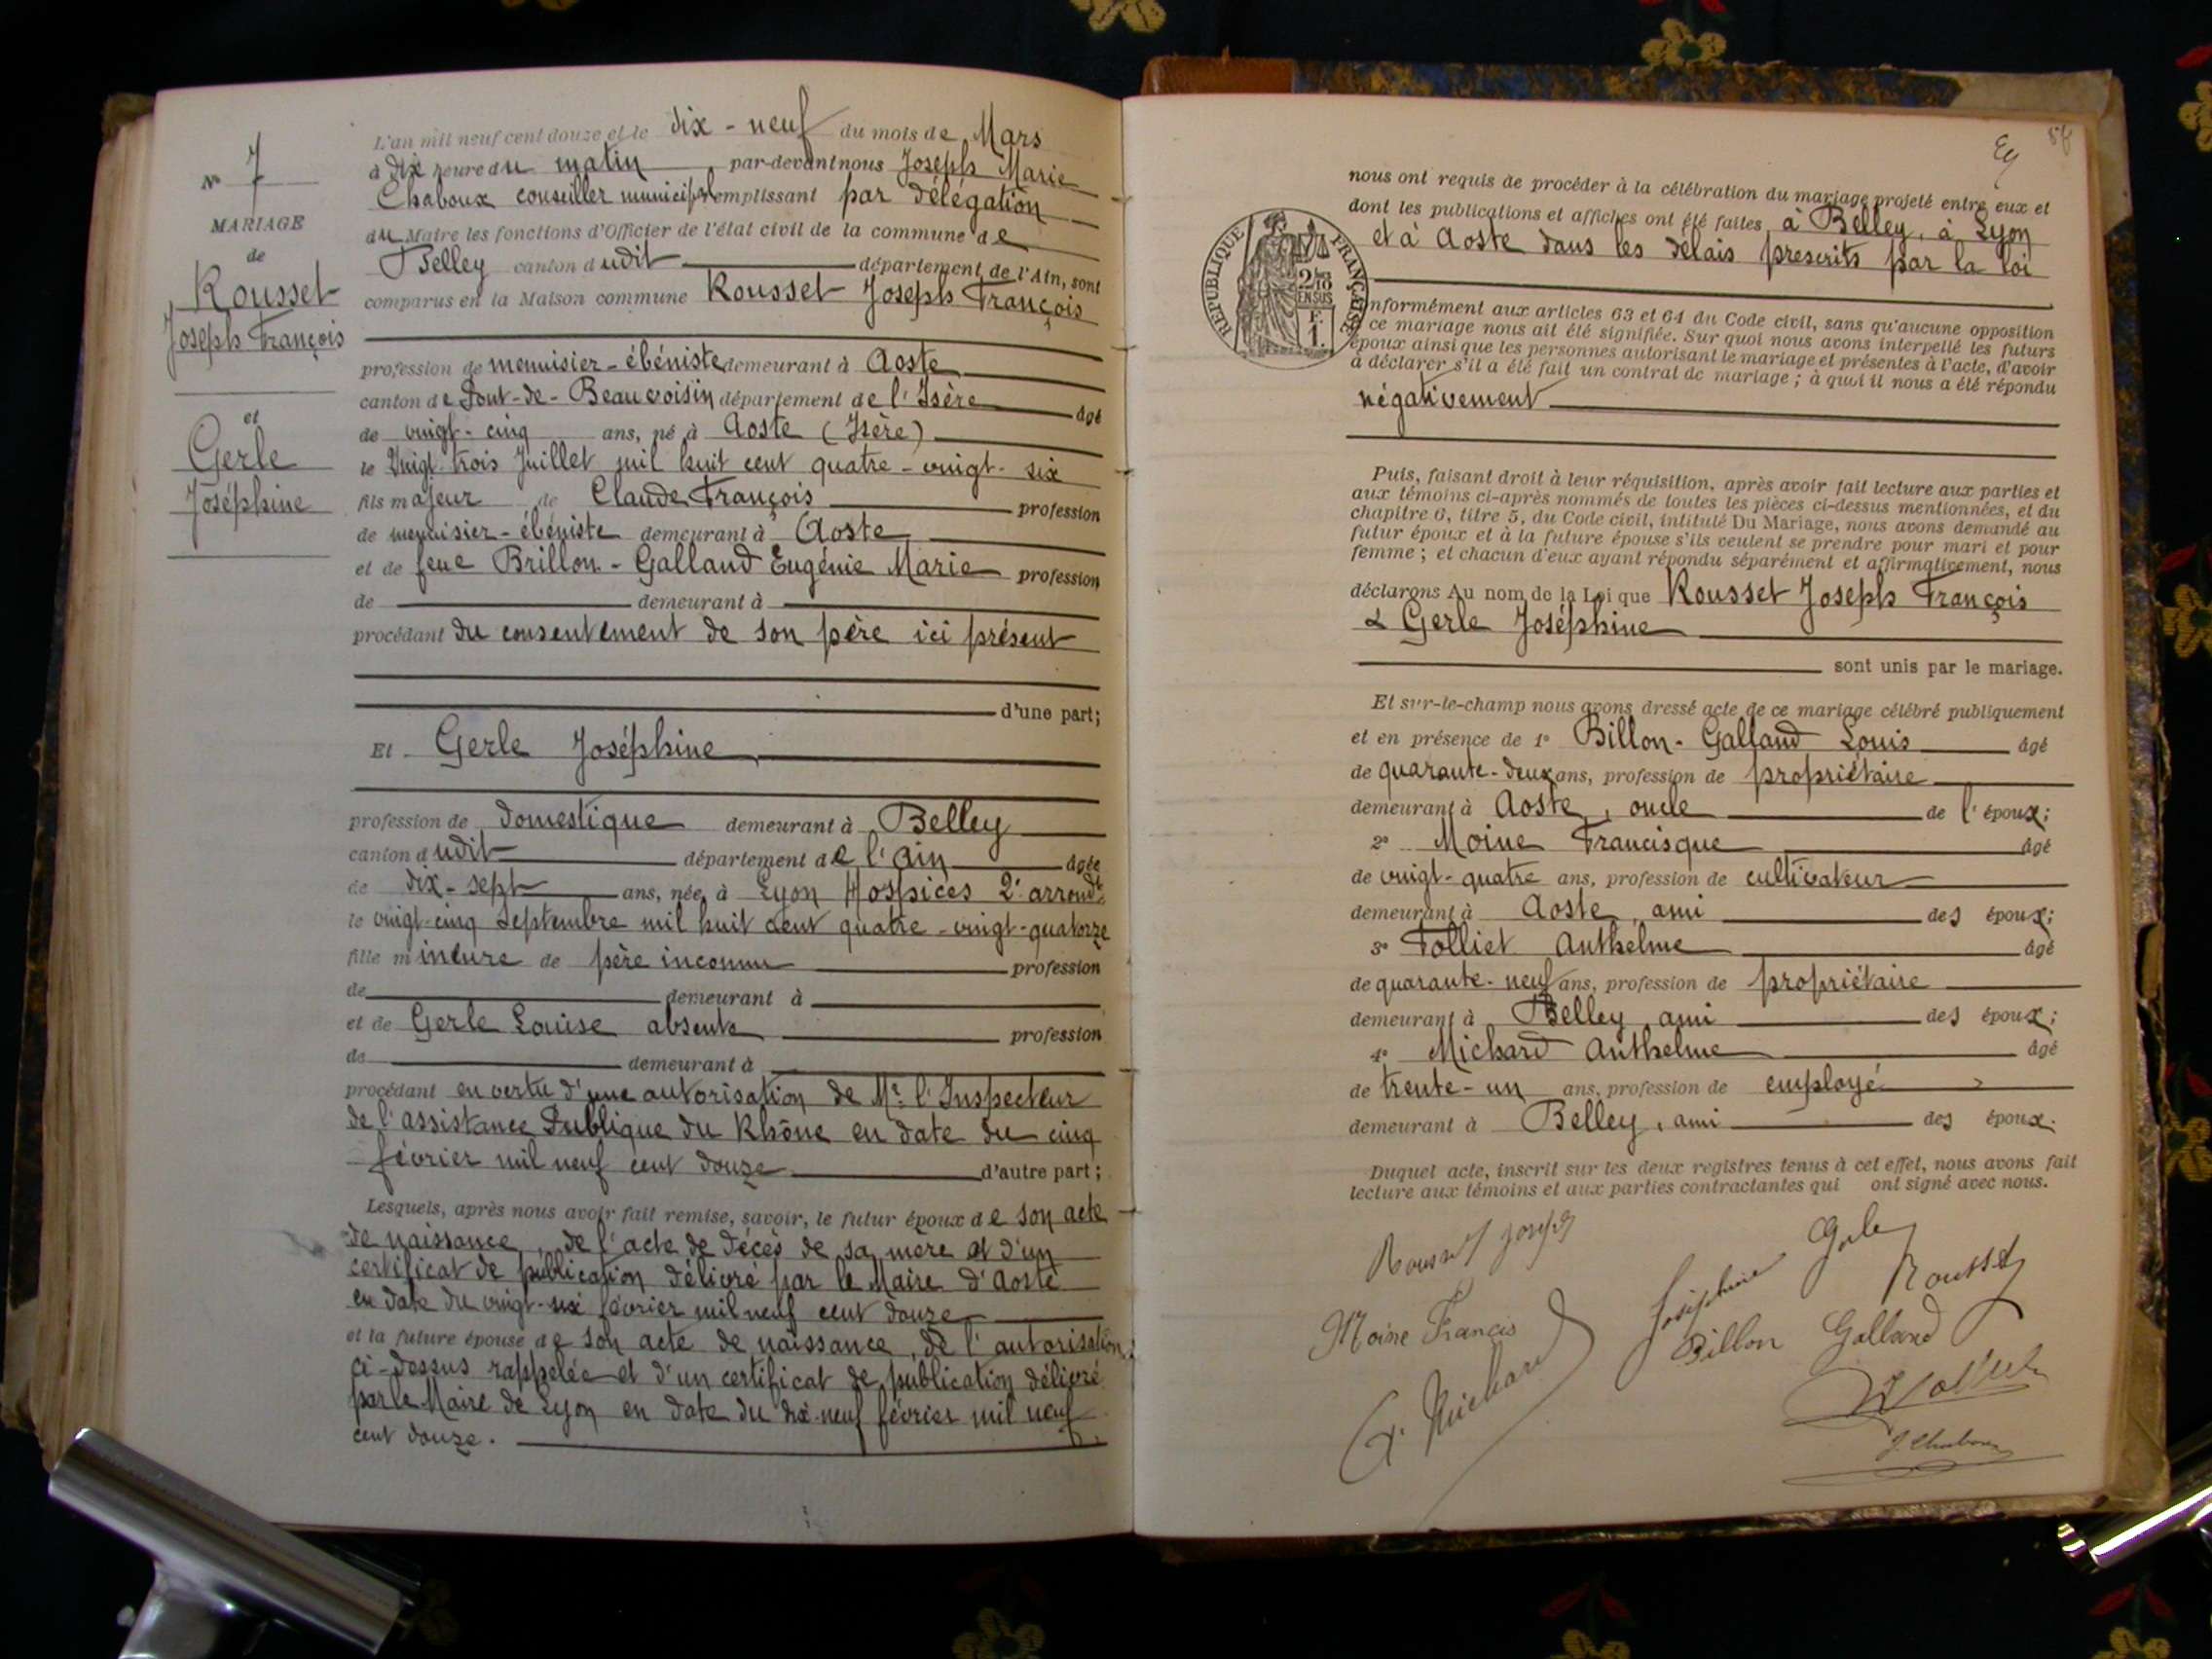 Nº 7
MARIAGE
de
Rousset
Joseph François
et
Gerle
Joséphine
L'an mil neuf cent douze et le dix-neuf du mois de Mars
à dix heure du matin par-devant nous Joseph Marie
Chaboux conseiller municipal remplissant par délégation
du Maire les fonctions d'Officier de l'état civil de la commune de
Belley canton dudit département de l'Ain, sont
comparus en la Maison commune Rousset Joseph François
profession de menuisier-ébéniste demeurant à Aoste
canton de Pont-de-Beauvoisin département de l'Isère âgé
de vingt-cinq ans, né à Aoste (Isère)
le Vingt-trois Juillet mil huit cent quatre-vingt-six
fils majeur de Claude François profession
de menuisier-ébéniste demeurant à Aoste
et de feue Brillon-Galland Eugénie Marie profession
de demeurant à
procédant du consentement de son père ici présent
d'une part;
Et Gerle Joséphine
profession de domestique demeurant à Belley
canton dudit département de l'Ain âgée
de dix-sept ans, née à Lyon Hospices 2e arrondt
le vingt-cinq Septembre mil huit cent quatre-vingt-quatorze
fille mineure de père inconnu profession
de demeurant à
et de Gerle Louise absente profession
de demeurant à
procédant en vertu d'une autorisation de Mr l'Inspecteur
de l'assistance Publique du Rhône en date du cinq
février mil neuf cent douze d'autre part;
Lesquels, après nous avoir fait remise, savoir, le futur époux de son acte
de naissance, de l'acte de décès de sa mère et d'un
certificat de publication délivré par le Maire d'Aoste
en date du vingt-six février mil neuf cent douze
et la future épouse de son acte de naissance, de l'autorisation
ci-dessus rappelée et d'un certificat de publication délivré
par le Maire de Lyon en date du dix-neuf février mil neuf
cent douze.
58
RÉPUBLIQUE FRANÇAISE
2/10
EN SUS
F.
1.
nous ont requis de procéder à la célébration du mariage projeté entre eux et
dont les publications et affiches ont été faites à Belley, à Lyon
et à Aoste dans les délais prescrits par la loi
nformément aux articles 63 et 64 du Code civil, sans qu'aucune opposition
ce mariage nous ait été signifiée. Sur quoi nous avons interpellé les futurs
époux ainsi que les personnes autorisant le mariage et présentes à l'acte, d'avoir
à déclarer s'il a été fait un contrat de mariage; à quoi il nous a été répondu
négativement
Puis, faisant droit à leur réquisition, après avoir fait lecture aux parties et
aux témoins ci-après nommés de toutes les pièces ci-dessus mentionnées, et du
chapitre 6, titre 5, du Code civil, intitulé Du Mariage, nous avons demandé au
futur époux et à la future épouse s'ils veulent se prendre pour mari et pour
femme; et chacun d'eux ayant répondu séparément et affirmativement, nous
déclarons Au nom de la Loi que Rousset Joseph François
& Gerle Joséphine
sont unis par le mariage.
Et sur-le-champ nous avons dressé acte de ce mariage célébré publiquement
et en présence de 1º Billon-Galland Louis âgé
de quarante-deux ans, profession de propriétaire
demeurant à Aoste, oncle de l'époux;
2º Moine Francisque âgé
de vingt-quatre ans, profession de cultivateur
demeurant à Aoste, ami des époux;
3º Folliet Anthelme âgé
de quarante-neuf ans, profession de propriétaire
demeurant à Belley, ami des époux;
4º Michard Anthelme âgé
de trente-un ans, profession de employé
demeurant à Belley, ami des époux.
Duquel acte, inscrit sur les deux registres tenus à cet effet, nous avons fait
lecture aux témoins et aux parties contractantes qui ont signé avec nous.
Rousset Joseph
Joséphine Gerle
Rousset
Moine Francis
Billon Galland
A. Michard
Folliet
J. Chaboux